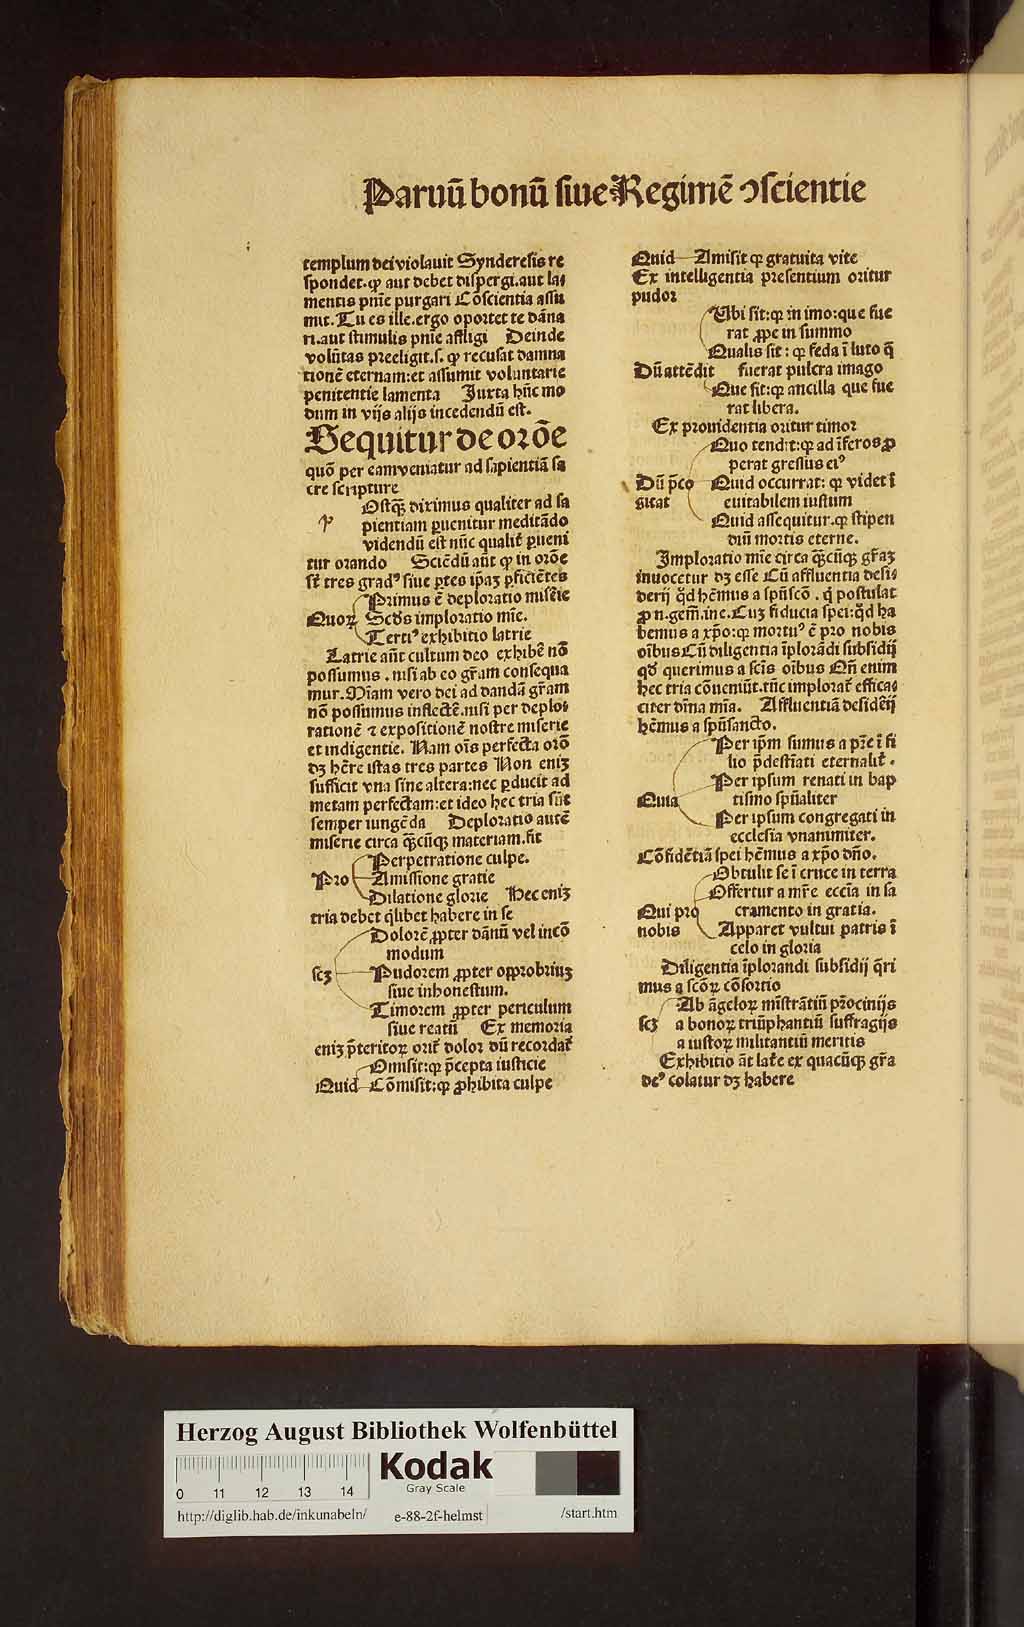 Paruū bonū siue Regimē ↄscientie
templum dei violauit Synderesis re
spondet. ꝙ aut debet dispergi. aut la⸗
mentis pn̄ie purgari Cōscientia assu
mit. Tu es ille. ergo oportet te dāna
ri. aut stimulis pn̄ie affligi Deinde
volūtas preeligit. s. ꝙ recusat damna
tionē eternam: et assumit voluntarie
penitentie lamenta Juxta hūc mo
dum in vijs alijs incedendū est.
Sequitur de orōe
quō per eam veniatur ad sapientiā sa
cre scripture
Ostqꝫ diximus qualiter ad sa
p pientiam ꝑuenitur meditādo
videndū est nūc qualit̄ ꝑueni
tur orando Sciēdū aūt ꝙ in orōe
st̄ tres gradꝰ siue ꝑtes ip̄aꝫ ꝑficiētes
Primus ē deploratio misēie
Quoꝝ Scd̄s imploratio mīe.
Tertiꝰ exhibitio latrie
Latrie aūt cultum deo exhibē nō
possumus. nisi ab eo gr̄am consequa
mur. Mīam vero dei ad dandā gr̄am
nō possumus inflectē. nisi per deplo⸗
rationē ⁊ expositionē nostre miserie
et indigentie. Nam oīs perfecta orō
dꝫ hēre istas tres partes Non eniꝫ
sufficit vna sine altera: nec ꝑducit ad
metam perfectam: et ideo hec tria sūt
semper iungēda Deploratio autē
miserie circa qꝫcūqꝫ materiam. fit
Perpetratione culpe.
Pro Amissione gratie
Dilatione glorie Hec eniꝫ
tria debet qͥlibet habere in se
Dolorē ꝓpter dānū vel incō
modum
scꝫ Pudorem ꝓpter opprobriuꝫ
siue inhonestum.
Timorem ꝓpter periculum
siue reatū Ex memoria
eniꝫ p̄teritoꝝ orit̄ dolor dū recordat̄
Omisit: ꝙ p̄cepta iusticie
Quid Cōmisit: ꝙ ꝓhibita culpe
Quid Amisit ꝙ gratuita vite
Ex intelligentia presentium oritur
pudor
Ubi sit: ꝙ in imo: que fue
rat ꝓpe in summo
Qualis sit: ꝙ feda ī luto q̄
Dū attēdit fuerat pulcra imago
Que sit: ꝙ ancilla que fue
rat libera.
Ex prouidentia oritur timor
Quo tendit: ꝙ ad īferos ꝓ
perat gressus eiꝰ
Dū p̄co Quid occurrat: ꝙ videt ī
gitat euitabilem iustum
Quid assequitur. ꝙ stipen
diū mortis eterne.
Imploratio mīe circa qꝫcūqꝫ gr̄aꝫ
inuocetur dꝫ esse Cū affluentia desi⸗
derij qd̄ hēmus a spūscō. qͥ postulat
ꝓ n. gem̄. ine. Cuꝫ fiducia spei: qd̄ ha
bemus a xp̄o: ꝙ mortuꝰ ē pro nobis
oībus Cū diligentia īplorādi subsidij
qd̄ querimus a scīs oībus Qn̄ enim
hec tria cōueniūt. tūc implorat̄ effica⸗
citer dīna mīa. Affluentiā desidēij
hēmus a spūsancto.
Per ip̄m sumus a pr̄e ī fi
lio p̄destīati eternalit̄.
Per ipsum renati in bap
Quia tismo spūaliter
Per ipsum congregati in
ecclesia vnanimiter.
Cōfidētiā spei hēmus a xp̄o dn̄o.
Obtulit se ī cruce in terra
Offertur a mr̄e eccīa in sa
Qui pro cramento in gratia.
nobis Apparet vultui patris ī
celo in gloria
Diligentia īplorandi subsidij q̄ri
mus a scōꝝ cōsortio
Ab āgeloꝝ mīstrātiū pr̄ocinijs
scꝫ a bonoꝝ triūphantiū suffragijs
a iustoꝝ militantiū meritis
Exhibitio āt latr̄e ex quacūqꝫ gr̄a
deꝰ colatur dꝫ habere
Herzog August Bibliothek Wolfenbüttel
Kodak
Gray Scale
0 11 12 13 14
http://diglib.hab.de/inkunabeln/ e-88-2f-helmst /start.htm